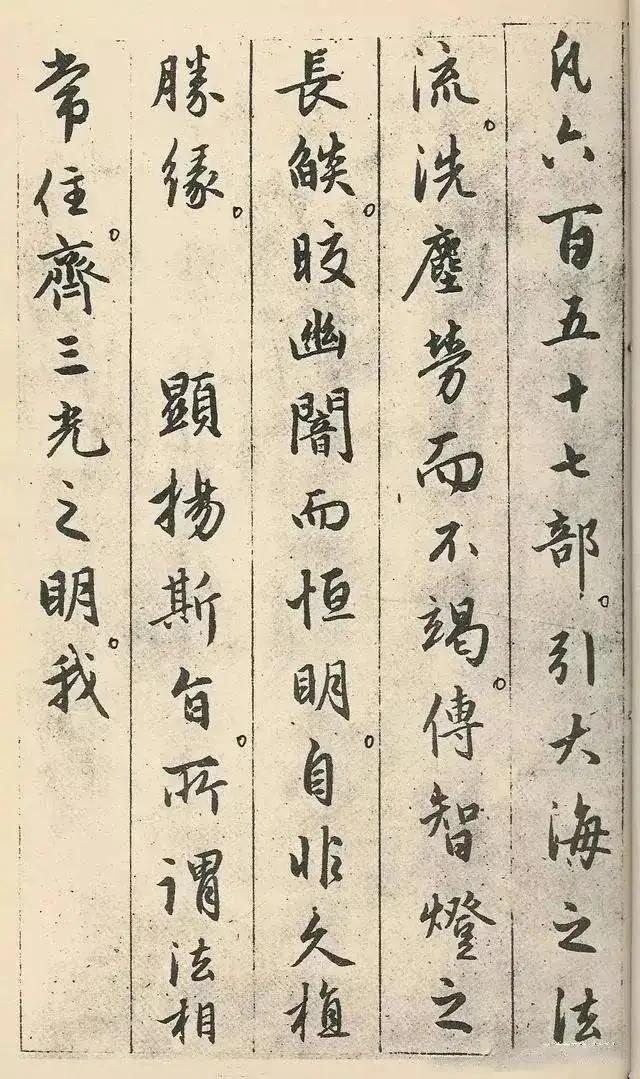 凡六百五十七部。引大海之法
流。洗塵勞而不竭。傳智燈之
長燄。皎幽闇而恒明。自非久植
勝緣。 顯揚斯旨。所謂法相
常住。齊三光之明。我